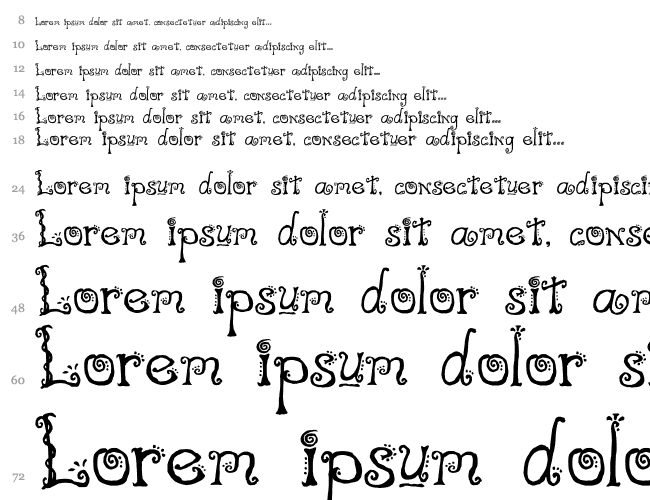 8 Lorem ipsum dolor sit amet, consectetuer adipiscing elit...
10 Lorem ipsum dolor sit amet, consectetuer adipiscing elit...
12 Lorem ipsum dolor sit amet, consectetuer adipiscing elit...
14 Lorem ipsum dolor sit amet, consectetuer adipiscing elit...
16 Lorem ipsum dolor sit amet, consectetuer adipiscing elit...
18 Lorem ipsum dolor sit amet, consectetuer adipiscing elit...
24 Lorem ipsum dolor sit amet, consectetuer adipisci
36 Lorem ipsum dolor sit amet, conse
48 Lorem ipsum dolor sit am
60 Lorem ipsum dolor s
72 Lorem ipsum dolo